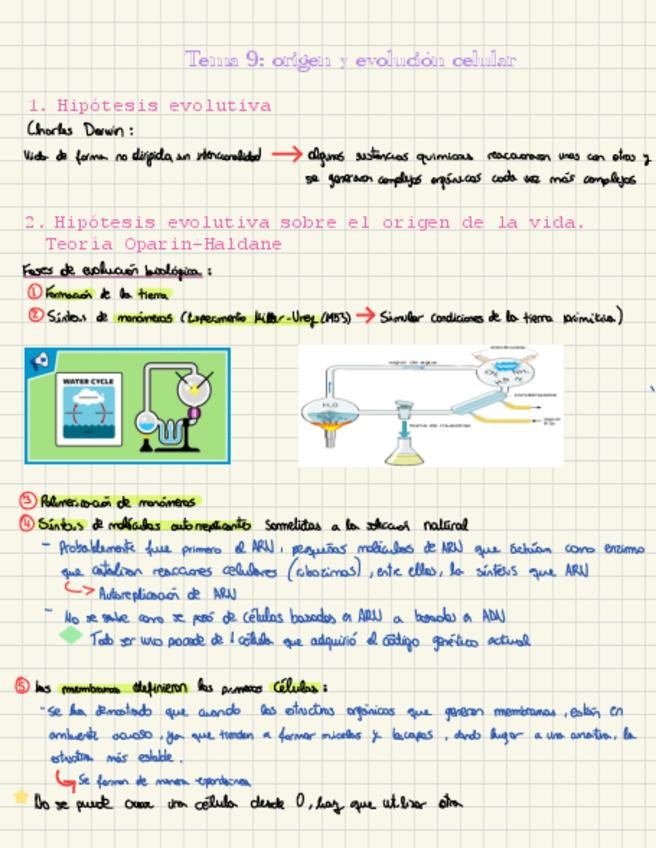 Tema 9: origen y evolución celular
1. Hipótesis evolutiva
Charles Darwin:
Vida de forma no dirigida, sin intencionalidad → algunas sustancias químicas reaccionaron unas con otras y
se generaron complejos orgánicos cada vez más complejos
2. Hipótesis evolutiva sobre el origen de la vida.
Teoría Oparin-Haldane
Fases de evolución biológica:
① Formación de la tierra
② Síntesis de monómeros (Experimento Miller-Urey (1953) → Simular condiciones de la tierra primitiva)
WATER CYCLE
vapor de agua
electrodos
H₂O
condensador
agua fría
toma de muestras
③ Polimerización de monómeros
④ Síntesis de moléculas autorreplicante sometidas a la selección natural
- Probablemente fue primero el ARN, pequeñas moléculas de ARN que actúan como enzima
que catalizan reacciones celulares (ribozimas), entre ellas, la síntesis que ARN
↳ Autoreplicación de ARN
- No se sabe como se pasó de células basadas en ARN a basadas en ADN
Todo ser vivo procede de 1 célula que adquirió el código genético actual
⑤ Las membranas definieron las primeras células:
- Se ha demostrado que cuando las estructuras orgánicas que generan membranas, están en
ambiente acuoso, ya que tienden a formar micelas y bicapas, dando lugar a una, la
estructura más estable.
↳ Se forman de manera espontánea
No se puede crear una célula desde 0, hay que utilizar otra